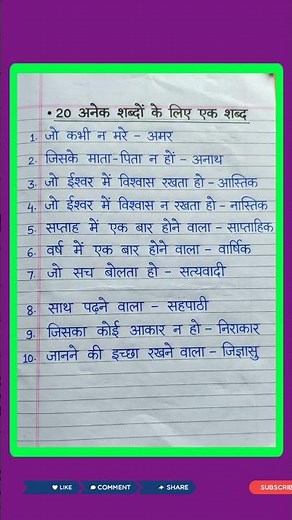 • 20 अनेक शब्दों के लिए एक शब्द
1. जो कभी न मरे – अमर
2. जिसके माता-पिता न हों – अनाथ
3. जो ईश्वर में विश्वास रखता हो – आस्तिक
4. जो ईश्वर में विश्वास न रखता हो – नास्तिक
5. सप्ताह में एक बार होने वाला – साप्ताहिक
6. वर्ष में एक बार होने वाला – वार्षिक
7. जो सच बोलता हो – सत्यवादी
8. साथ पढ़ने वाला – सहपाठी
9. जिसका कोई आकार न हो – निराकार
10. जानने की इच्छा रखने वाला – जिज्ञासु
LIKE COMMENT SHARE SUBSCRIB